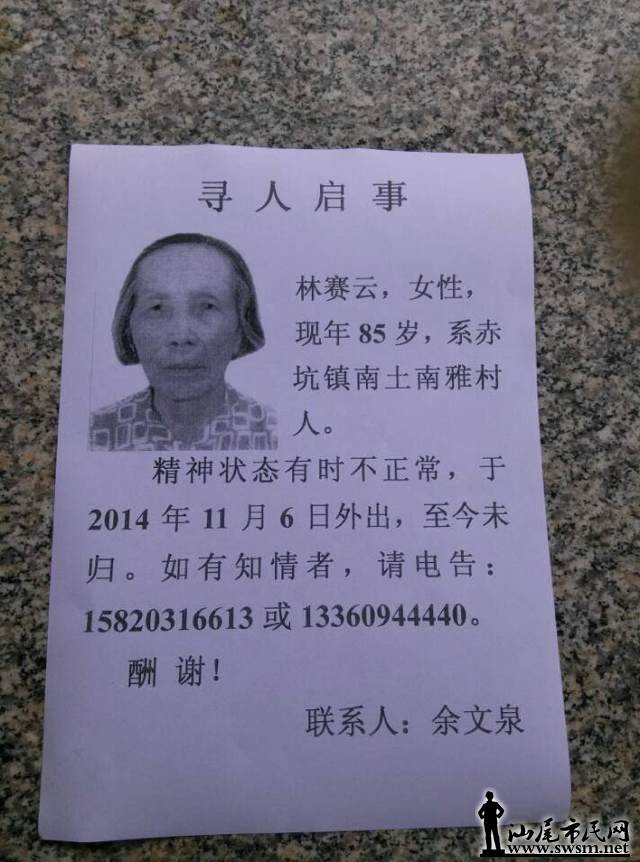 寻人启事
林赛云，女性，
现年85岁，系赤
坑镇南土南雅村
人。
精神状态有时不正常，于
2014年11月6日外出，至今未
归。如有知情者，请电告：
15820316613或13360944440。
酬谢！
联系人：余文泉
汕尾市民网
www.swsm.net